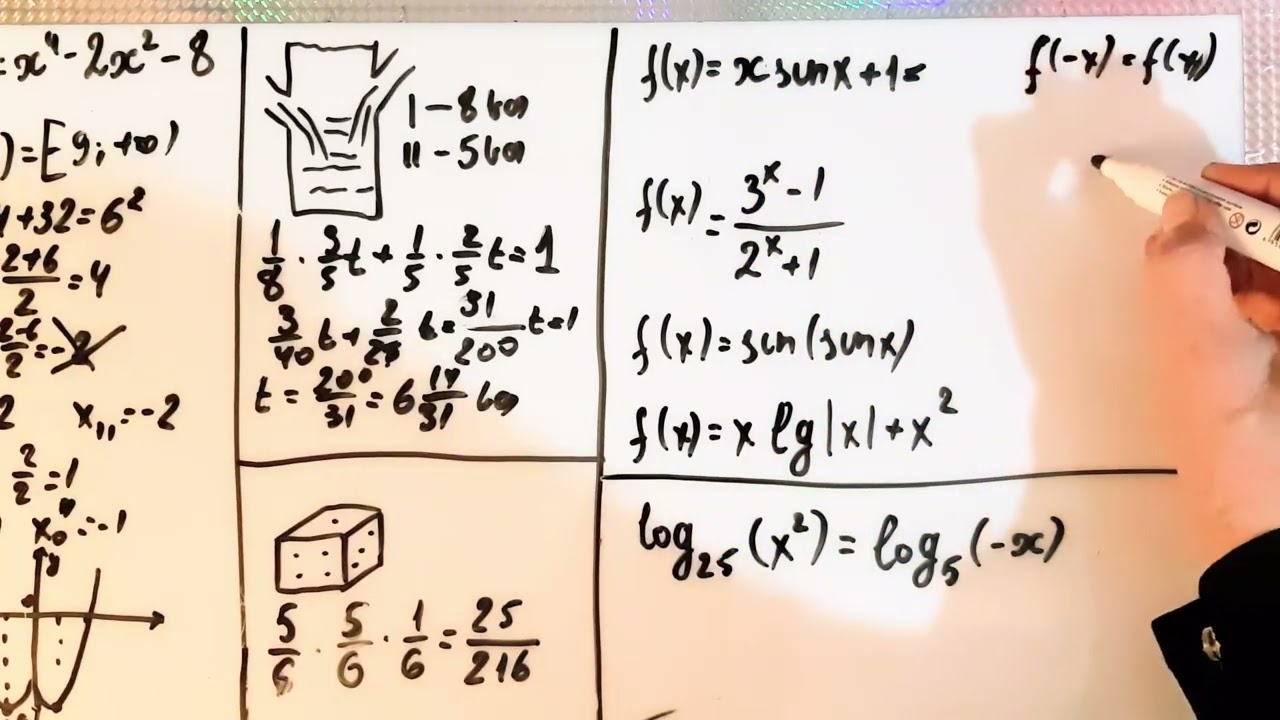 = x⁴ - 2x² - 8
) = [9; +∞)
4 + 32 = 6²
(2+6)/2 = 4
= -2
x₁₁ = -2
2/2 = 1
= -1
y
I - 8
II - 5
1/8 · 3/5 t + 1/5 · 2/5 t = 1
3/40 t + 2/25 t = 31/200 t = 1
t = 200/31 = 6 14/31
5/6 · 5/6 · 1/6 = 25/216
f(x) = x sin x + 1 =
f(-x) = f(x)
f(x) = (3ˣ - 1)/(2ˣ + 1)
f(x) = sin(sin x)
f(x) = x lg|x| + x²
log₂₅(x²) = log₅(-x)